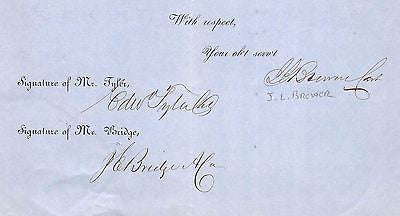 With respect,
Your obt serv't
Signature of Mr. Tyler,
Edwd Tyler
J. L. BREWER
Signature of Mr. Bridge,
J E Bridge & Co